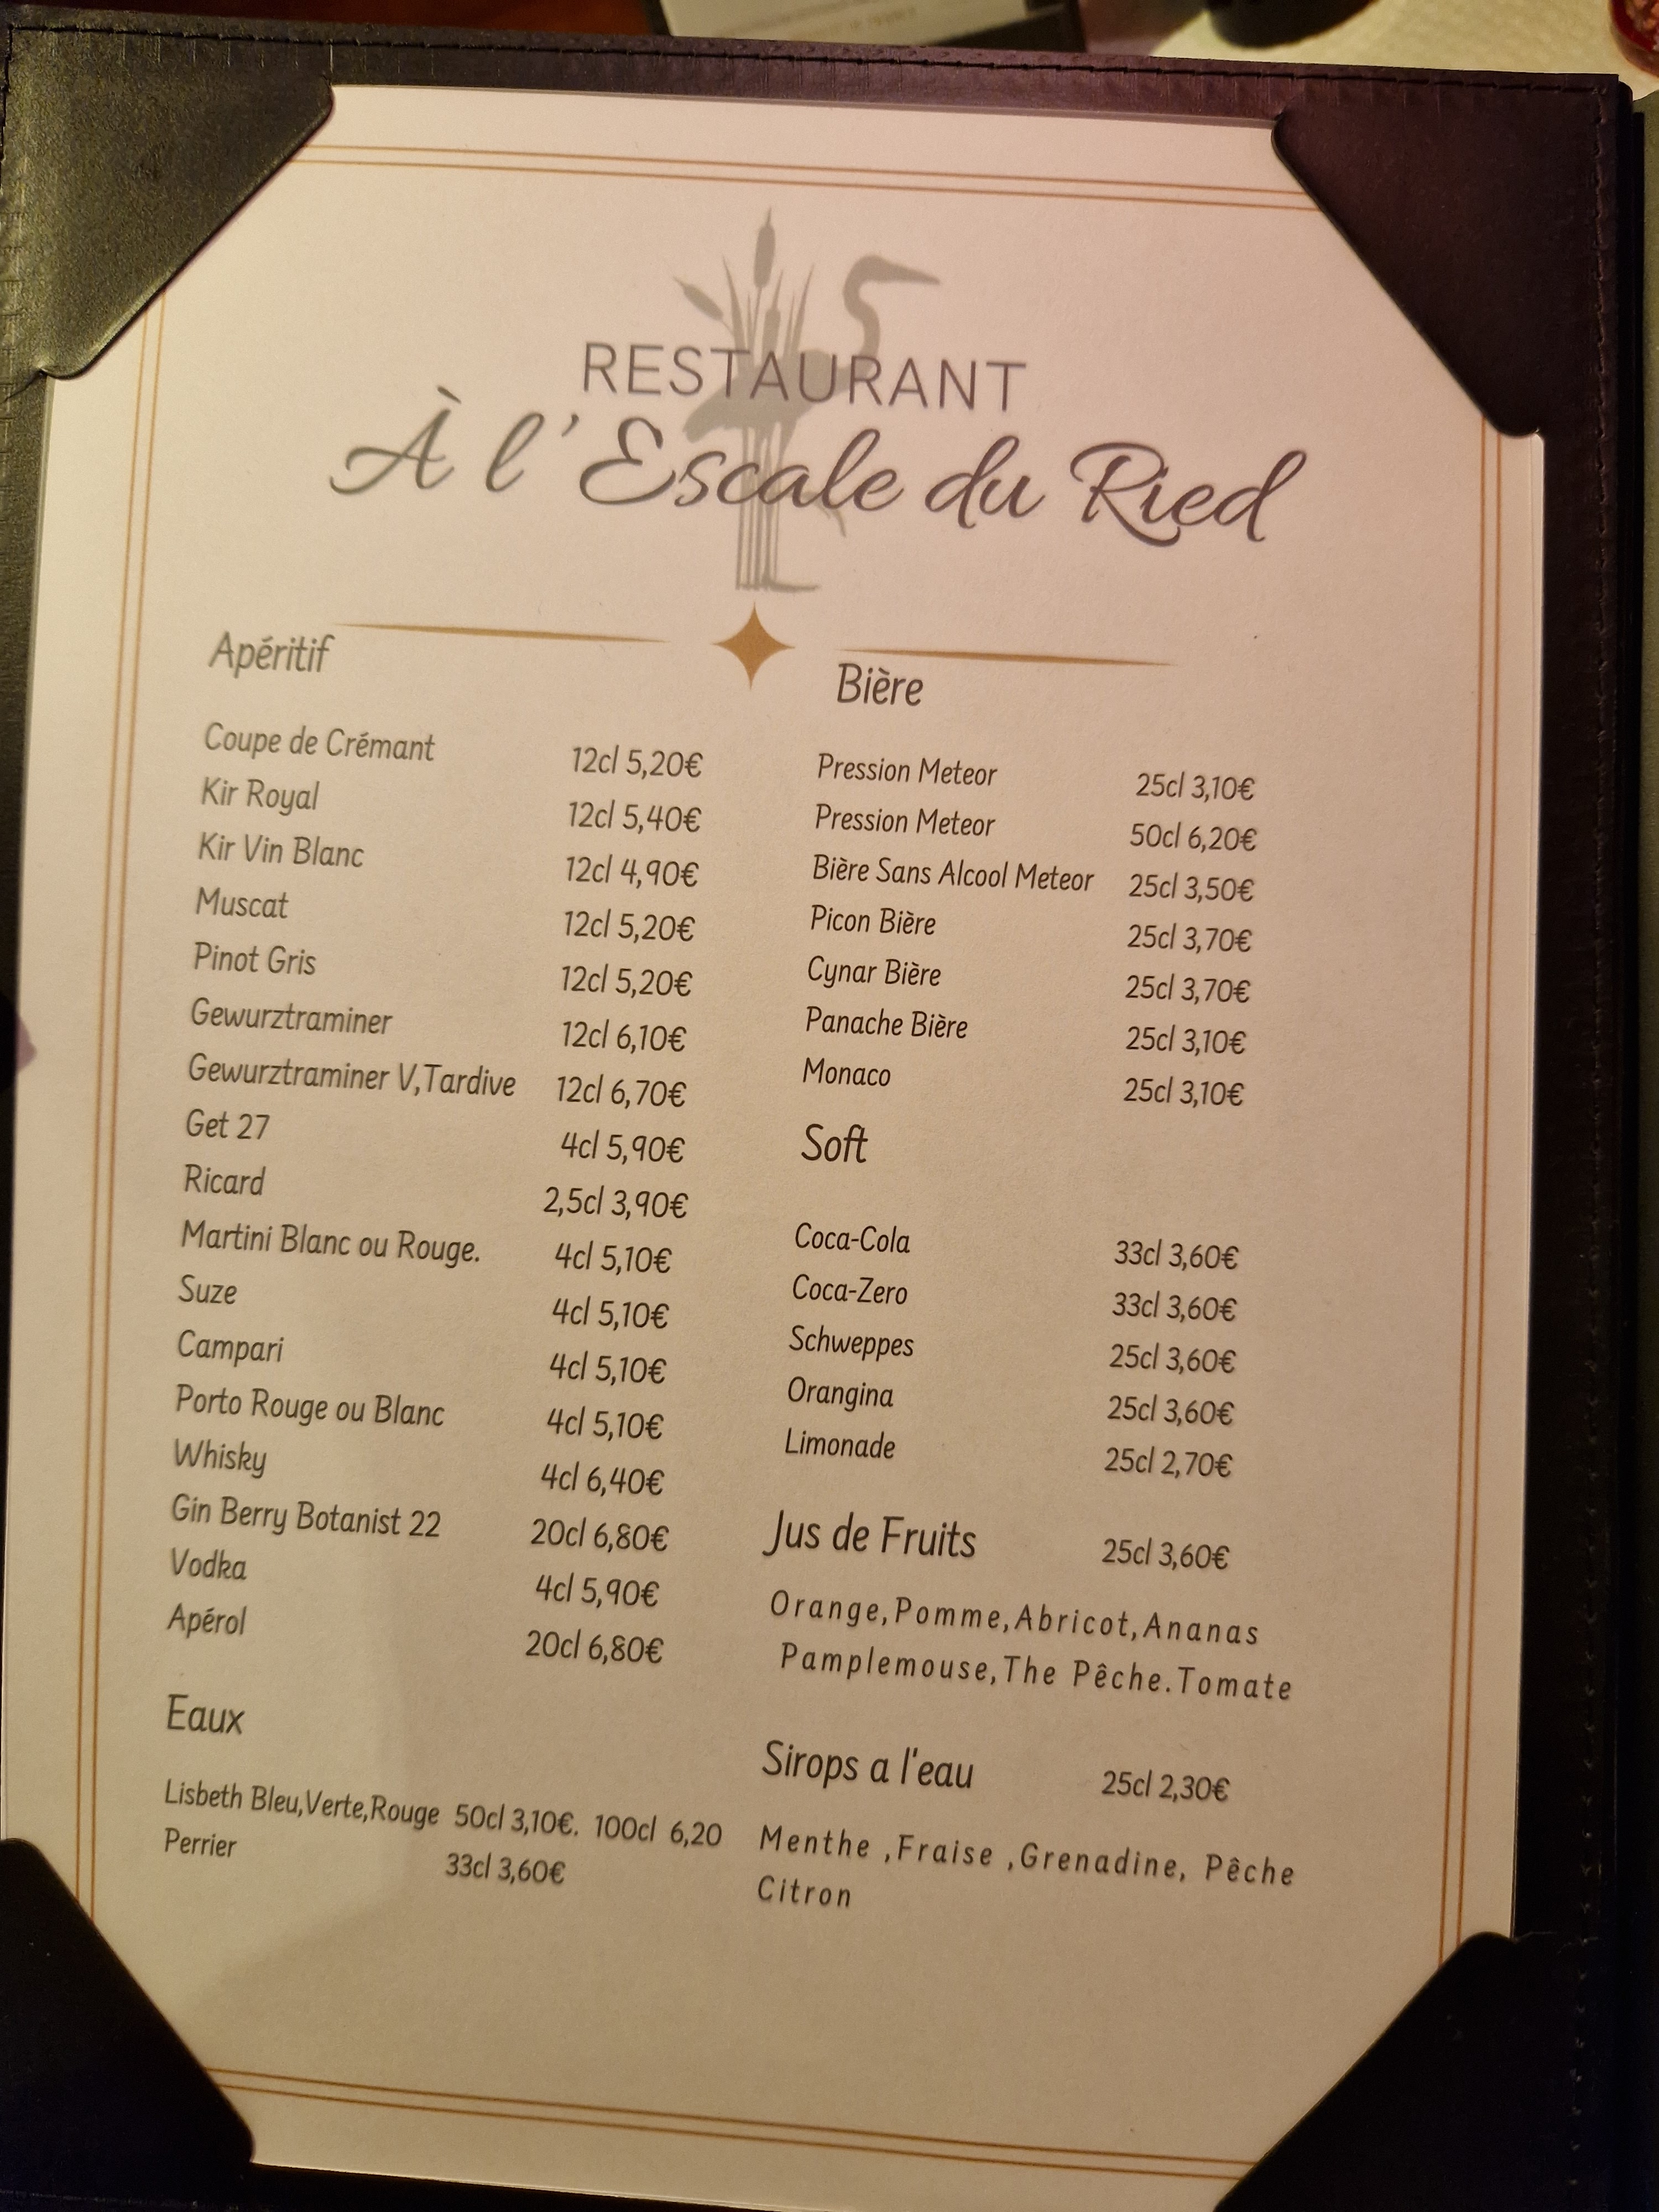 RESTAURANT
À l'Escale du Ried
Apéritif
Coupe de Crémant 12cl 5,20€
Kir Royal 12cl 5,40€
Kir Vin Blanc 12cl 4,90€
Muscat 12cl 5,20€
Pinot Gris 12cl 5,20€
Gewurztraminer 12cl 6,10€
Gewurztraminer V,Tardive 12cl 6,70€
Get 27 4cl 5,90€
Ricard 2,5cl 3,90€
Martini Blanc ou Rouge. 4cl 5,10€
Suze 4cl 5,10€
Campari 4cl 5,10€
Porto Rouge ou Blanc 4cl 5,10€
Whisky 4cl 6,40€
Gin Berry Botanist 22 20cl 6,80€
Vodka 4cl 5,90€
Apérol 20cl 6,80€
Eaux
Lisbeth Bleu,Verte,Rouge 50cl 3,10€. 100cl 6,20
Perrier 33cl 3,60€
Bière
Pression Meteor 25cl 3,10€
Pression Meteor 50cl 6,20€
Bière Sans Alcool Meteor 25cl 3,50€
Picon Bière 25cl 3,70€
Cynar Bière 25cl 3,70€
Panache Bière 25cl 3,10€
Monaco 25cl 3,10€
Soft
Coca-Cola 33cl 3,60€
Coca-Zero 33cl 3,60€
Schweppes 25cl 3,60€
Orangina 25cl 3,60€
Limonade 25cl 2,70€
Jus de Fruits 25cl 3,60€
Orange,Pomme,Abricot,Ananas
Pamplemouse,The Pêche.Tomate
Sirops a l'eau 25cl 2,30€
Menthe ,Fraise ,Grenadine, Pêche
Citron